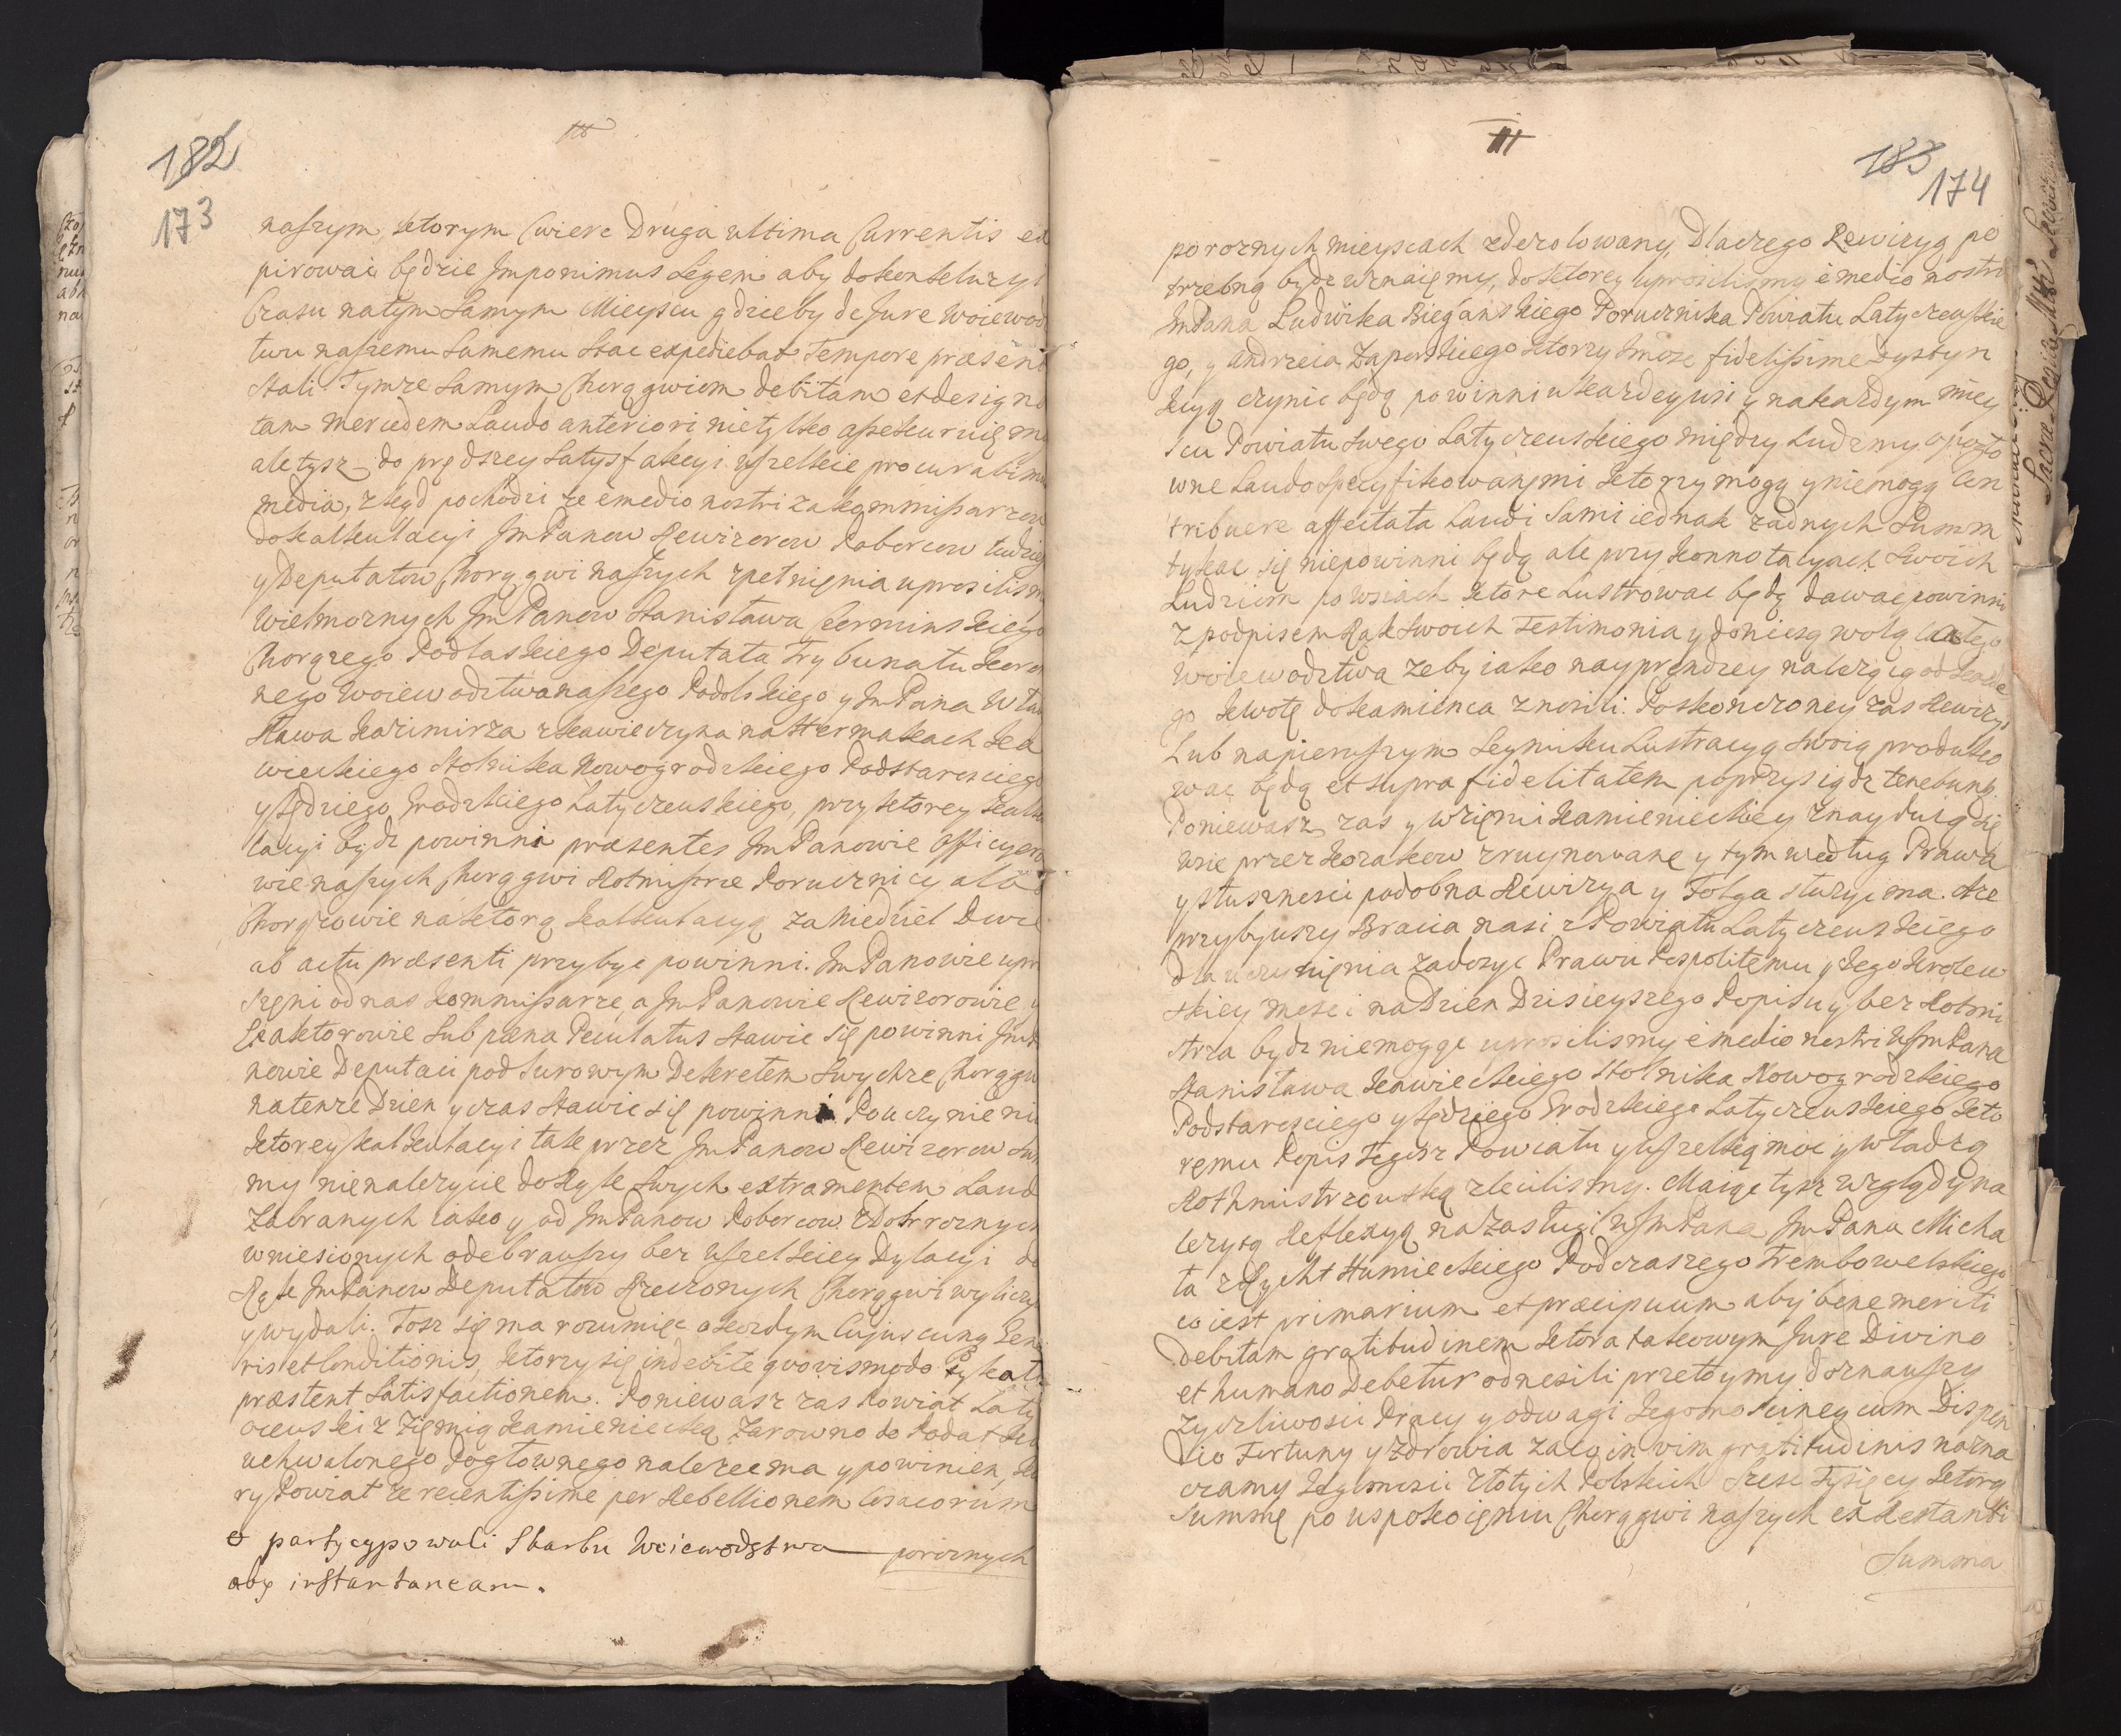 182
173
naszym, ktorym Cwierc Druga ultima Currentis ex
pirowaic będzie Imponimus Legem aby dokonkluzyi
Czasu natym Samym Mieyscu gdzieby de Jure Woiewodz
twu naszemu Samemu Stac expediebat Tempore præsenti
stali. Tymze Samym Chorągwiom debitam et designa
tam mercedem Laudo anteriori nietylko assekuruięmy
ale tysz do prędszey Satysfakcyi wszelkie procurabimus
media, zkąd pochodzi ze e medio nostri za kommissarzow
dokalkulacyi Jm Panow Rewizorow Poborcow tudziesz
y Deputatow Chorągwi naszych zpełnięnia uprosilismy
Wielmoznych Jm Panow Stanisława Cerminskiego
Chorązego Podlaskiego Deputata Trybunału koron
nego woiewodztwa naszego Podolskiego y Jm Pana Wła
sława Kazimirza zkawieczyna na Hermakach Ka
wieckiego Stolnika Nowogrodzkiego Podstarosciego
y Sędziego Grodzkiego Latyczewskiego, przy ktorey kalku
lacyi bydz powinni præsentes Jm Panowie Officyero
wie naszych Chorągwi Rotmistrze Porucznicy albo
Chorązowie na ktorą kalkulacyą za Niedziel Dwie
ab actu præsenti przybyc powinni. Jm Panowie upro
szęni od nas kommissarze, a Jm Panowie Rewizorowie y
Exaktorowie Sub pœna Peculatus stawic się powinni Jm Pa
nowie Deputaci pod Surowym Dekretem Swychze Chorągwi
natenze Dzien y czas stawic się powinni. Po uczynieniu
ktorey kalkulacyi tak przez Jm Panow Rewizorow Sum
my nienalezycie do Rąk Swych extra mentem Laudi
Zabranych iako y od Jm Panow Poborcow z Dobr roznych
wniesionych odebrawszy bez wszelkiey Dylacyi do
Rąk Jm Panow Deputatow Rzeczonych Chorągwi wyliczyli
y wydali. Tosz się ma rozumięc o kozdym cujuscunq gene
ris et Conditionis, ktorzy się indebite quovismodo tykali
præstent Satisfactionem. Poniewasz zas Powiat Laty
czewski z Zięmią Kamieniecką Zarowno do Podatku
uchwalonego Pogłownego nalezec ma y powinien, kto
ry Powiat ze recentissime per Rebellionem Cosacorum
o partycypowali Skarbu Woiewodztwa
aby instantaneam.
poroznych
183
174
poroznych mieyscach zdezolowany, Dlaczego Rewizyą po
trzebną bydz uznaięmy, do ktorey uprosilismy è medio nostri
Jm Pana Ludwika Bieganskiego Porucznika Powiatu Latyczewskie
go, y Andrzeia Zaporskiego ktorzy Imosc fidelissime Dystyn
kcyą czynic będą powinni w kazdey wsi y na kazdym miey
scu Powiatu Swego Latyczewskiego między Ludzmy
wne Laudo specyfikowanęmi ktorzy mogą y niemogą Con
tribuere affectata Laudi Sami iednak zadnych Summ
tykac się niepowinni będą ale przy konnotacyach Swoich
Ludziom po wsiach ktore Lustrowac będą dawac powinni
z podpisem Rąk Swoich Testimonia y doniesą wolą całego
Woiewodztwa zeby iako nayprendzey nalezącą od kazde
go kwotę do kamienca znosili. Poskonczoney zas Rewizyi
Lub napierwszym Seymiku Lustracyą Swoią produko
wac będą et supra fidelitatem poprzysiądz tenebunt.
Poniewasz zas y w Zięmi Kamienieckiey znayduią się
wsie przez kozakow zruynowane y tym według Prawa
y słusznosci podobna Rewizya y Folga sluzyc ma. Aze
przybywszy Bracia nasi z Powiatu Latyczewskiego
Dla uczynięnia zadosyc Prawu Pospolitemu y Jego krolew
skiey msci na Dzien Dzisieyszego Popisu y bez Rotmi
strza bydz niemogąc uprosilismy è medio nostri WJm Pana
Stanisława Kawieckiego Stolnika Nowogrodzkiego
Podstaroscięgo y Sędziego Grodzkiego Latyczewskiego kto
ręmu Popis Tegosz Powiatu y wszelką moc y władzą
Rothmistrzowską zlecilismy. Maiąc tysz wzgląd y na
lezytą Reflexyą na zasługi WJm Pana Jm Pana Micha
ła z Rycht Humieckiego Podczaszego Trembowelskiego
co iest primarium et præcipuum aby bene meriti
Debitam gratitudinem ktora takowym Jure Divino
et humano Debetur odnosili przeto y my doznawszy
Zyczliwosci Pracy y odwagi Jegomoscineg cum Dispen
dio Fortuny y zdrowia zaco in vim gratitudinis nazna
czamy Jegomosci złotych Polskich Szesc Tysięcy ktorą
Summę po uspokoięniu Chorągwi naszych ex Restanti
Summa